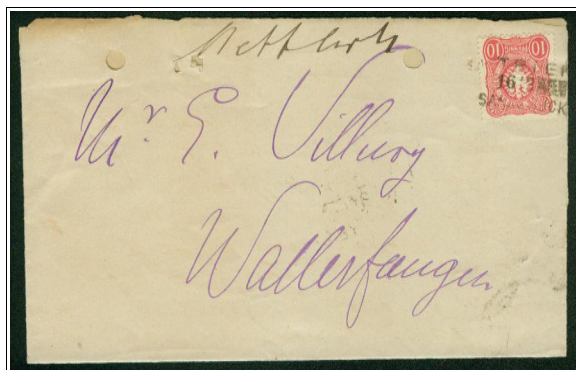 Mettlach
10 10
TRIER
16/2
Mr E. Villeroy
Wallerfangen